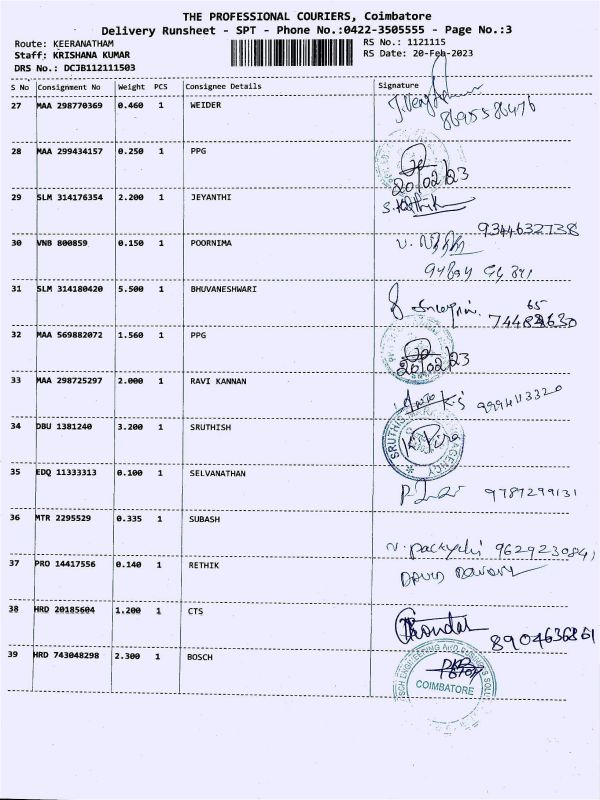 THE PROFESSIONAL COURIERS, Coimbatore
Delivery Runsheet - SPT - Phone No.:0422-3505555 - Page No.:3
Route: KEERANATHAM
RS No.: 1121115
Staff: KRISHANA KUMAR
RS Date: 20-Feb-2023
DRS No.: DCJB112111503
S No Consignment No Weight PCS Consignee Details Signature
27 MAA 298770369 0.460 1 WEIDER
28 MAA 299434157 0.250 1 PPG
20/02/23
29 SLM 314176354 2.200 1 JEYANTHI
9344632738
30 VNB 800859 0.150 1 POORNIMA
31 SLM 314180420 5.500 1 BHUVANESHWARI
32 MAA 569882072 1.560 1 PPG
20/02/23
33 MAA 298725297 2.000 1 RAVI KANNAN
9994113320
34 DBU 1381240 3.200 1 SRUTHISH
35 EDQ 11333313 0.100 1 SELVANATHAN
9787299131
36 MTR 2295529 0.335 1 SUBASH
9629230841
37 PRO 14417556 0.140 1 RETHIK
DAVID
38 HRD 20185604 1.200 1 CTS
8904636861
39 HRD 743048298 2.300 1 BOSCH
COIMBATORE